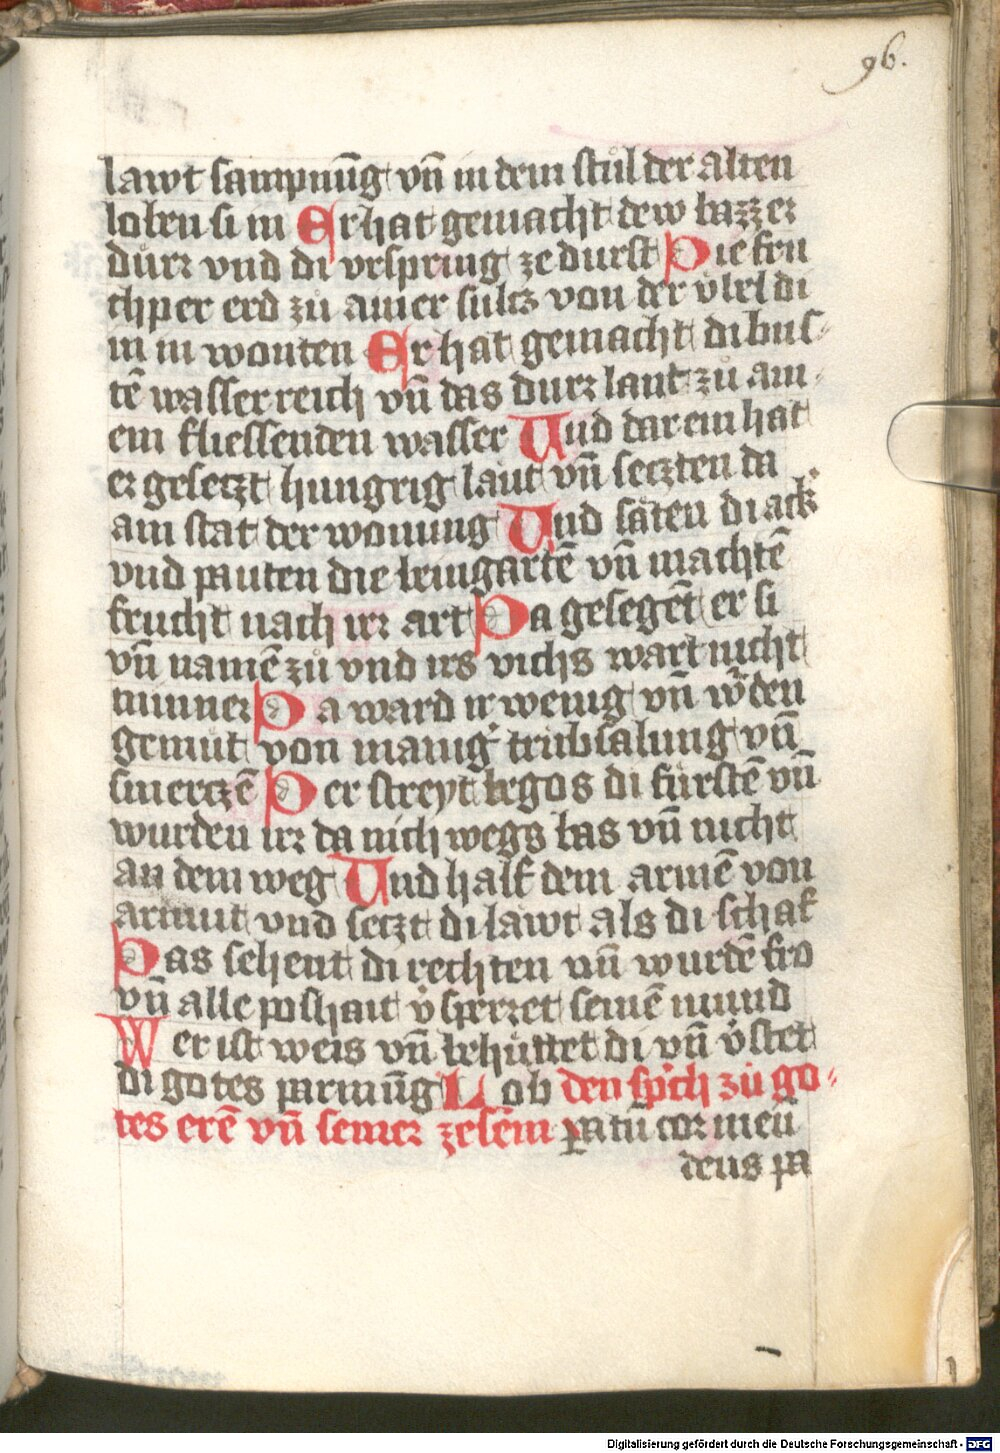 96.
lawt sampnūg vn̄ in dem stůl der alten
loben si in Er hat gemacht dew bazzer
důrr vnd di vrspring ze durst Die fru
chper erd zů ainer sulcz von der v̈bel di
in in wonten Er hat gemacht di bus-
tē wasser reich vn̄ das durr lant zů ain-
em fliessenden wasser Vnd dar ein hat
er gesetzt hungrig läut vn̄ seczten da
ain stat der wonung Vnd säten di ack̄
vnd pauten die weingartē vn̄ machtē
frucht nach irr art Da gesegēt er si
vn̄ namē zů vnd irs vichs wart nicht
minner Da ward ir wenig vn̄ w̄den
gemůt von maniḡ trübsalung vn̄
smerczē Der streyt begos di fürstē vn̄
wurden irr da nich wegs bas vn̄ nicht
an dem weg Vnd half dem armē von
armut vnd seczt di läwt als di schaf
Das sehent di rechten vn̄ wurdē fro
vn̄ alle poshait v̇sperret seinē mund
Wer ist weis vn̄ behüttet di vn̄ v̇stet
di gotes parmūg Lob den sp̄ch zů go-
tes erē vn̄ seiner zesēm Patū cor meū
deus pa
Digitalisierung gefördert durch die Deutsche Forschungsgemeinschaft - DFG